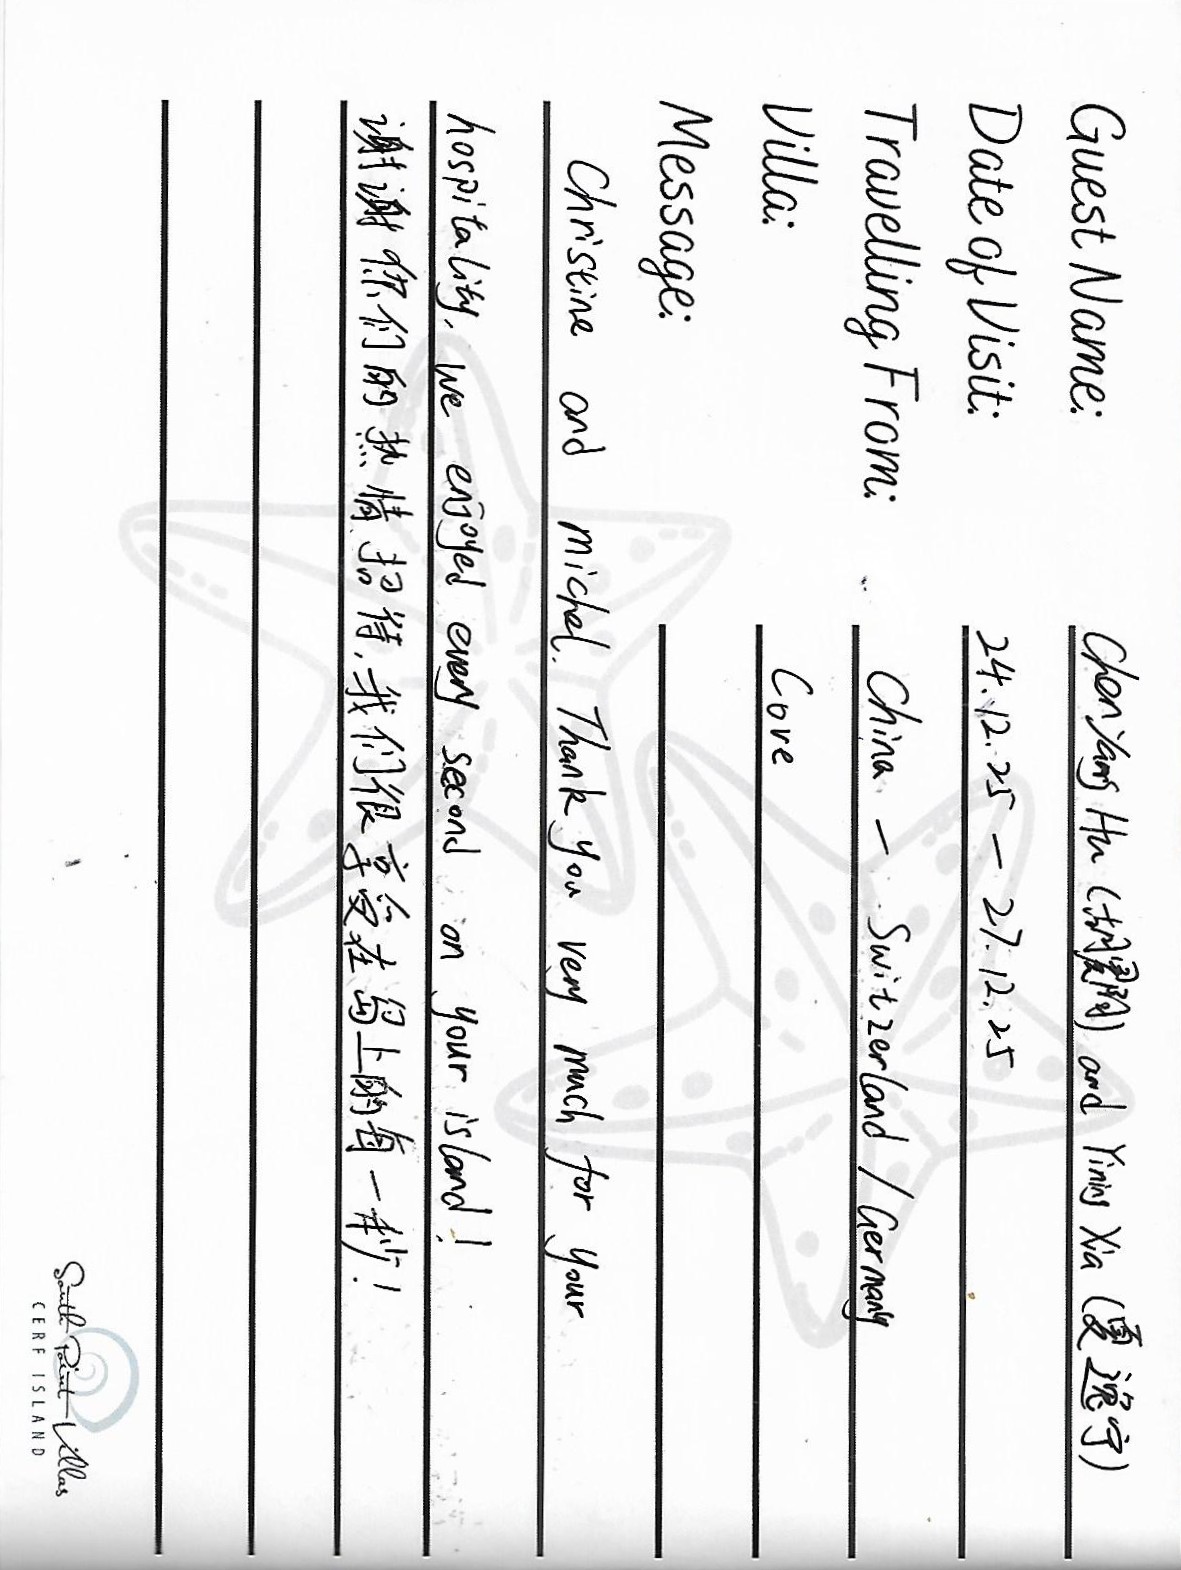 Guest Name: Chen Yang Hu (胡晨阳) and Yining Xia (夏逸宁)
Date of Visit: 24.12.25 – 27.12.25
Travelling From: China – Switzerland / Germany
Villa: Cove
Message:
Christine and michel. Thank you very much for your
hospitality, we enjoyed every second on your island!
谢谢你们的热情招待,我们很享受在岛上的每一秒!
South Point Villas
CERF ISLAND